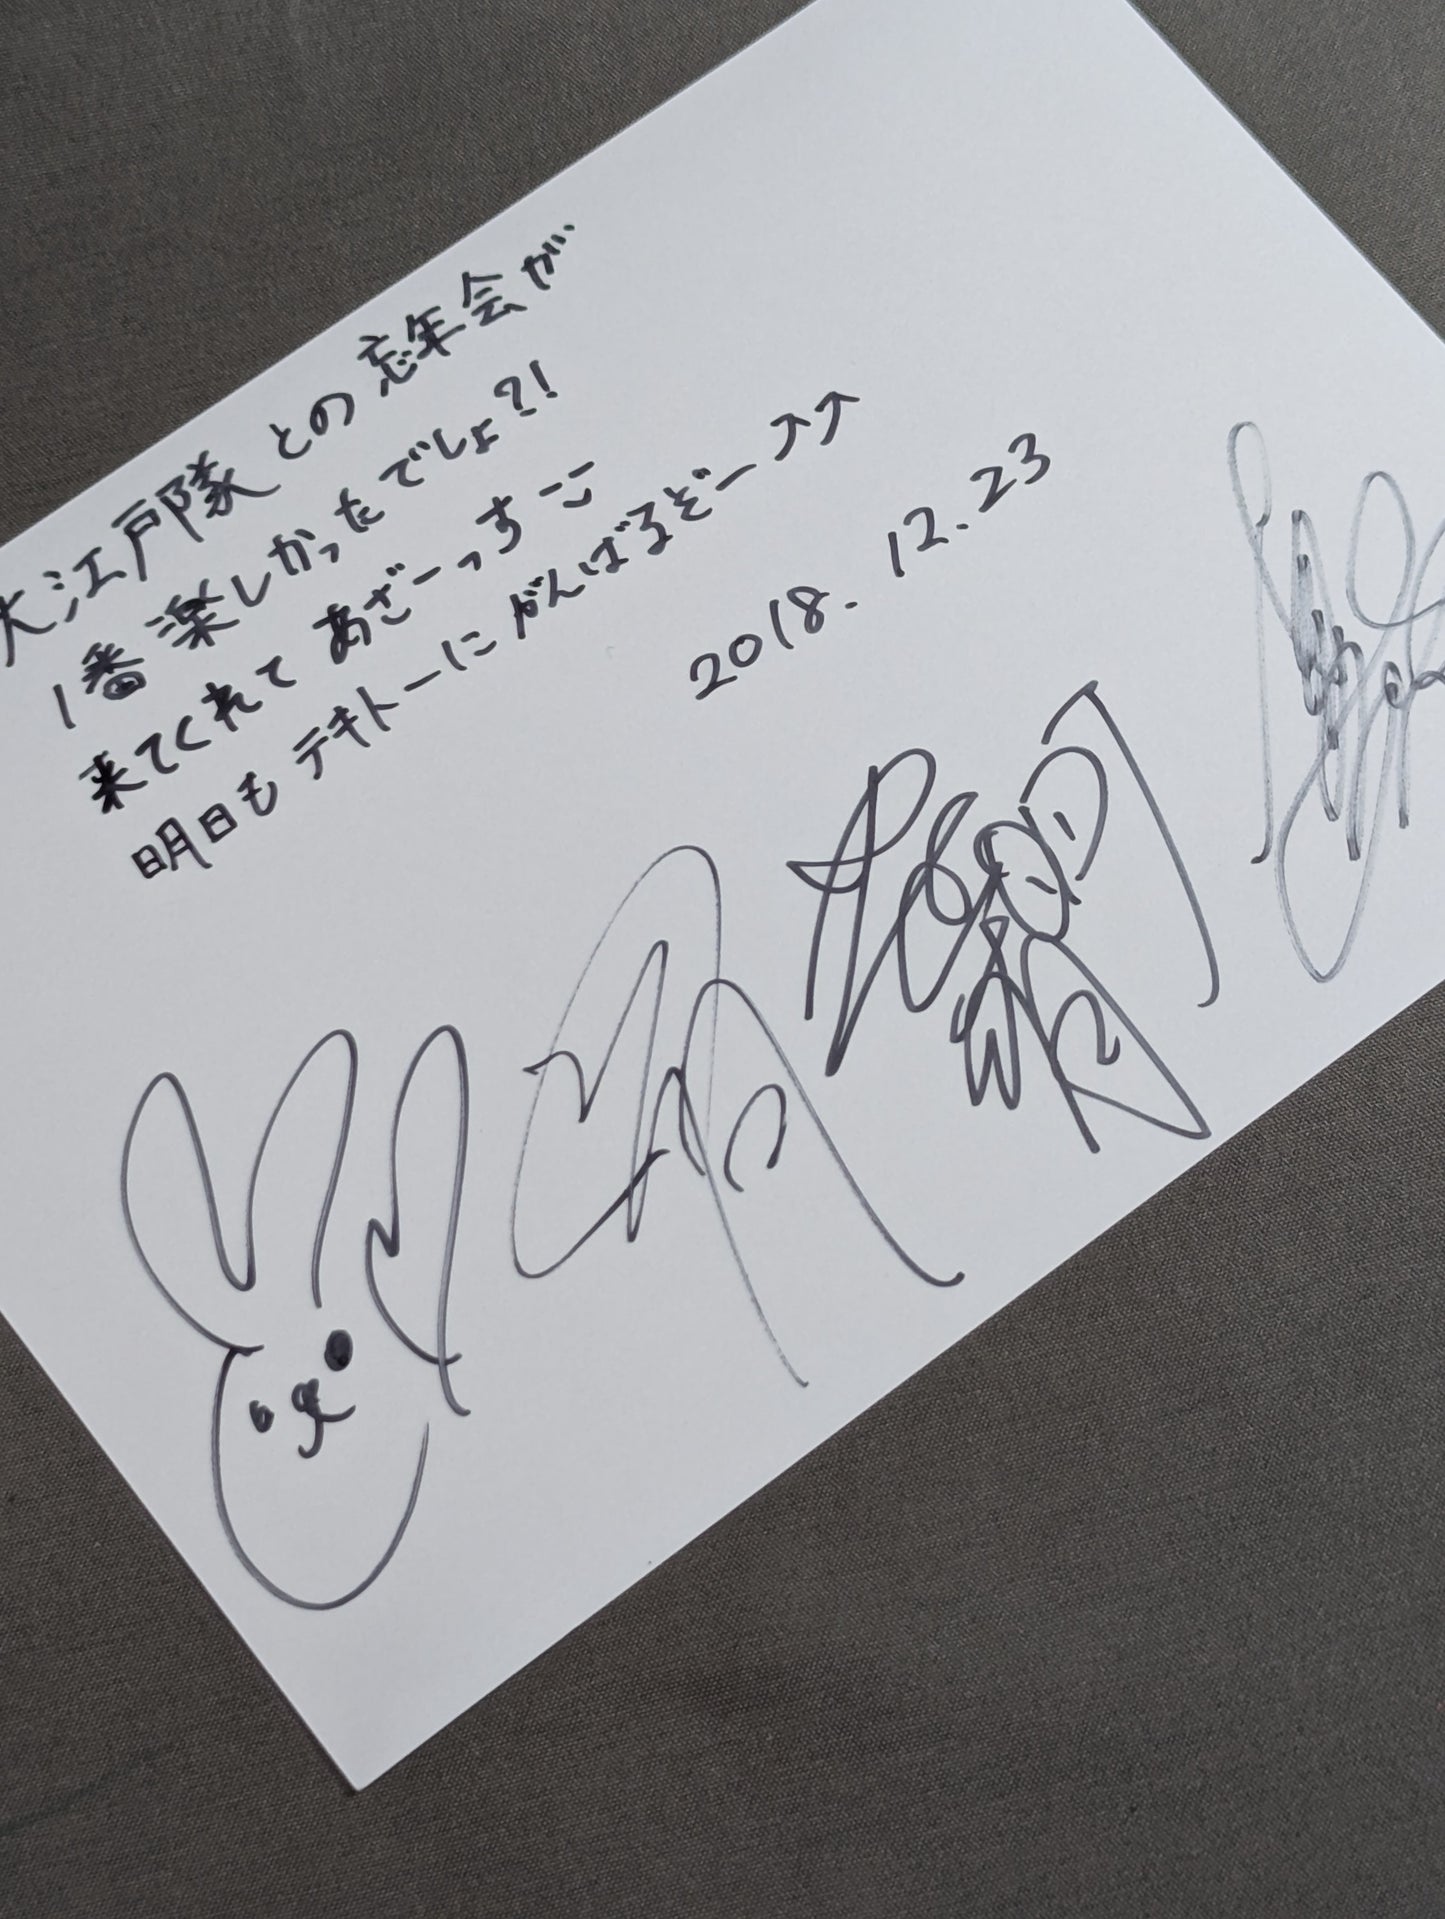 大江戸隊との忘年会が
1番楽しかったでしょ?!
来てくれてあざーっすここ
明日もテキトーにがんばるぞー↗↗
2018.12.23